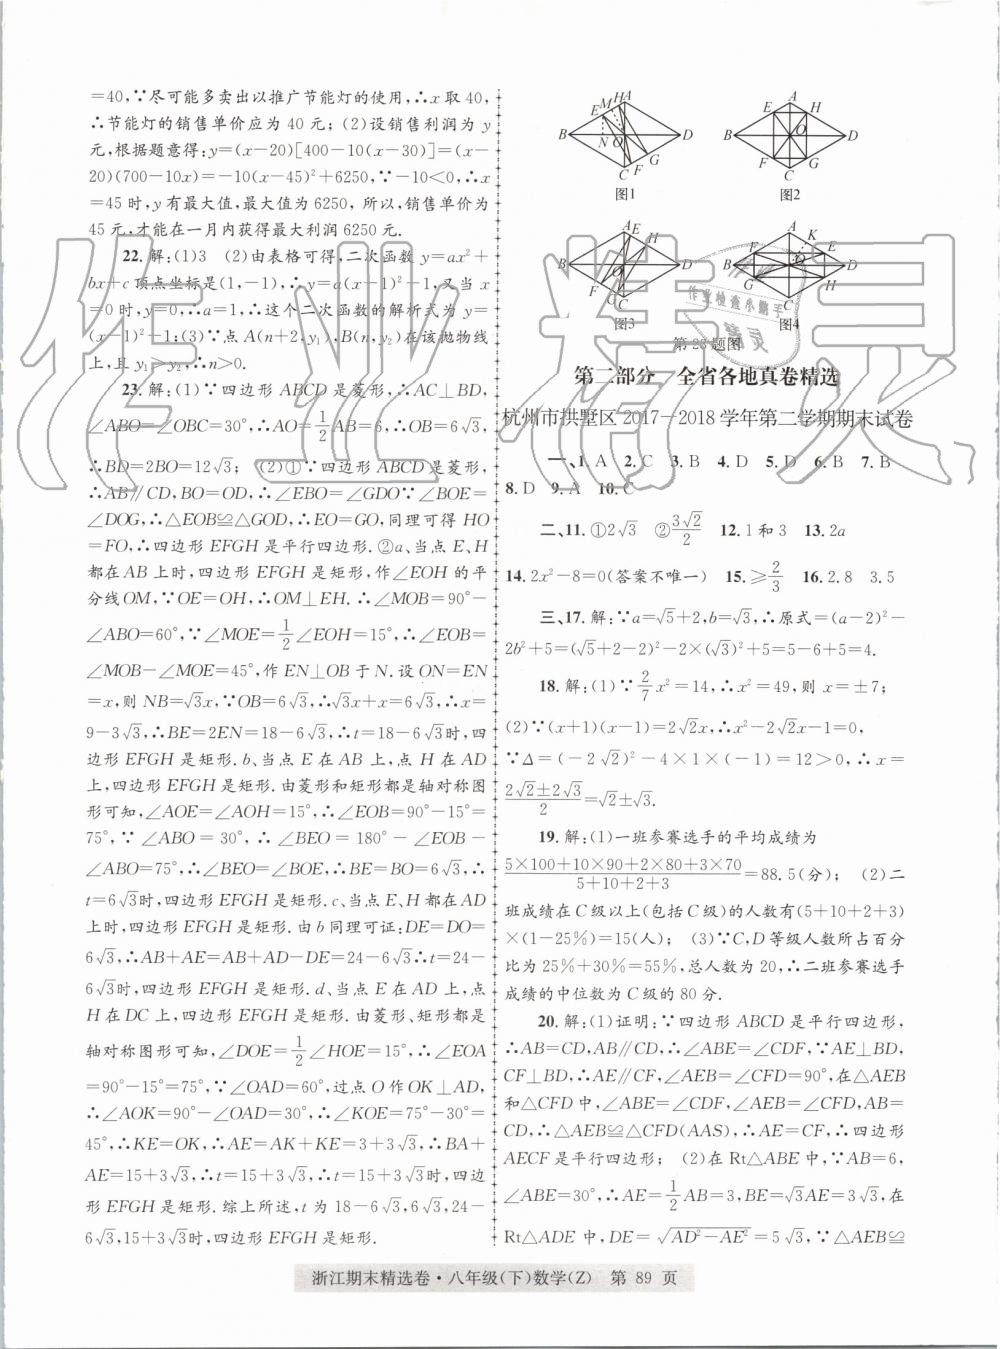 =40,∵尽可能多卖出以推广节能灯的使用,∴x取40,
∴节能灯的销售单价应为40元;(2)设销售利润为y
元,根据题意得:y=(x-20)[400-10(x-30)]=(x-
20)(700-10x)=-10(x-45)²+6250,∵-10<0,∴x
=45时,y有最大值,最大值为6250,所以,销售单价为
45元,才能在一月内获得最大利润6250元.
22.解:(1)3 (2)由表格可得,二次函数y=ax²+
bx+c顶点坐标是(1,-1),∴y=a(x-1)²-1,又当x
=0时,y=0,∴a=1,∴这个二次函数的解析式为y=
(x-1)²-1;(3)∵点A(n+2,y₁),B(n,y₂)在该抛物线
上,且y₁>y₂,∴n>0.
23.解:(1)∵四边形ABCD是菱形,∴AC⊥BD,
∠ABO=∠OBC=30°,∴AO=1/2AB=6,∴OB=6√3,
∴BD=2BO=12√3; (2)①∵四边形ABCD是菱形,
∴AB∥CD,BO=OD,∴∠EBO=∠GDO∵∠BOE=
∠DOG,∴△EOB≌△GOD,∴EO=GO,同理可得HO
=FO,∴四边形EFGH是平行四边形.②a、当点E、H
都在AB上时,四边形EFGH是矩形,作∠EOH的平
分线OM,∵OE=OH,∴OM⊥EH.∴∠MOB=90°-
∠ABO=60°,∵∠MOE=1/2∠EOH=15°,∴∠EOB=
∠MOB-∠MOE=45°,作EN⊥OB于N.设ON=EN
=x,则NB=√3x,∵OB=6√3,∴√3x+x=6√3,∴x=
9-3√3,∴BE=2EN=18-6√3,∴t=18-6√3时,四
边形EFGH是矩形.b、当点E在AB上,点H在AD
上,四边形EFGH是矩形.由菱形和矩形都是轴对称图
形可知,∠AOE=∠AOH=15°,∴∠EOB=90°-15°=
75°,∵∠ABO=30°,∴∠BEO=180°-∠EOB-
∠ABO=75°,∴∠BEO=∠BOE,∴BE=BO=6√3,∴
t=6√3时,四边形EFGH是矩形.c、当点E、H都在AD
上时,四边形EFGH是矩形.由b同理可证:DE=DO=
6√3,∴AB+AE=AB+AD-DE=24-6√3∴t=24-
6√3时,四边形EFGH是矩形.d、当点E在AD上,点
H在DC上,四边形EFGH是矩形.由菱形、矩形都是
轴对称图形可知,∠DOE=1/2∠HOE=15°,∴∠EOA
=90°-15°=75°,∵∠OAD=60°,过点O作OK⊥AD,
∴∠AOK=90°-∠OAD=30°,∴∠KOE=75°-30°=
45°,∴KE=OK,∴AE=AK+KE=3+3√3,∴BA+
AE=15+3√3,∴t=15+3√3,∴t=15+3√3时,四边
形EFGH是矩形.综上所述,t为18-6√3,6√3,24-
6√3,15+3√3时,四边形EFGH是矩形.
图1 图2
图3 图4
第23题图
第二部分 全省各地真卷精选
杭州市拱墅区2017—2018学年第二学期期末试卷
一、1.A 2.C 3.B 4.D 5.D 6.B 7.B
8.D 9.A 10.C
二、11.①2√3 ②3√2/2 12.1和3 13.2a
14.2x²-8=0(答案不唯一) 15.≥2/3 16.2.8 3.5
三、17.解:∵a=√5+2,b=√3,∴原式=(a-2)²-
2b²+5=(√5+2-2)²-2×(√3)²+5=5-6+5=4.
18.解:(1)∵2/7x²=14,∴x²=49,则x=±7;
(2)∵(x+1)(x-1)=2√2x,∴x²-2√2x-1=0,
∵Δ=(-2√2)²-4×1×(-1)=12>0,∴x=
(2√2±2√3)/2=√2±√3.
19.解:(1)一班参赛选手的平均成绩为
(5×100+10×90+2×80+3×70)/(5+10+2+3)=88.5(分); (2)二
班成绩在C级以上(包括C级)的人数有(5+10+2+3)
×(1-25%)=15(人); (3)∵C,D等级人数所占百分
比为25%+30%=55%,总人数为20,∴二班参赛选手
成绩的中位数为C级的80分.
20.解:(1)证明:∵四边形ABCD是平行四边形,
∴AB=CD,AB∥CD,∴∠ABE=∠CDF,∵AE⊥BD,
CF⊥BD,∴AE∥CF,∠AEB=∠CFD=90°,在△AEB
和△CFD中,∠ABE=∠CDF,∠AEB=∠CFD,AB=
CD,∴△ABE≌△CFD(AAS),∴AE=CF,∴四边形
AECF是平行四边形; (2)在Rt△ABE中,∵AB=6,
∠ABE=30°,∴AE=1/2AB=3,BE=√3AE=3√3,在
Rt△ADE中,DE=√(AD²-AE²)=√(5²-3²)=4,∵△AEB≌
浙江期末精选卷·八年级(下)数学(Z) 第89页